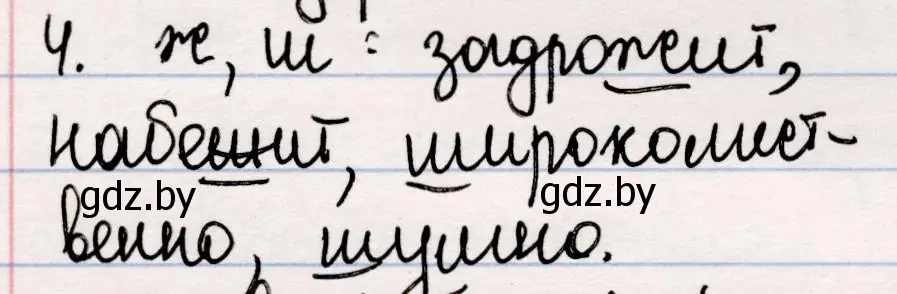 4. ж, ш: задрожит,
набежит, широколист-
gdz.by gdz.by
венно, шумно.